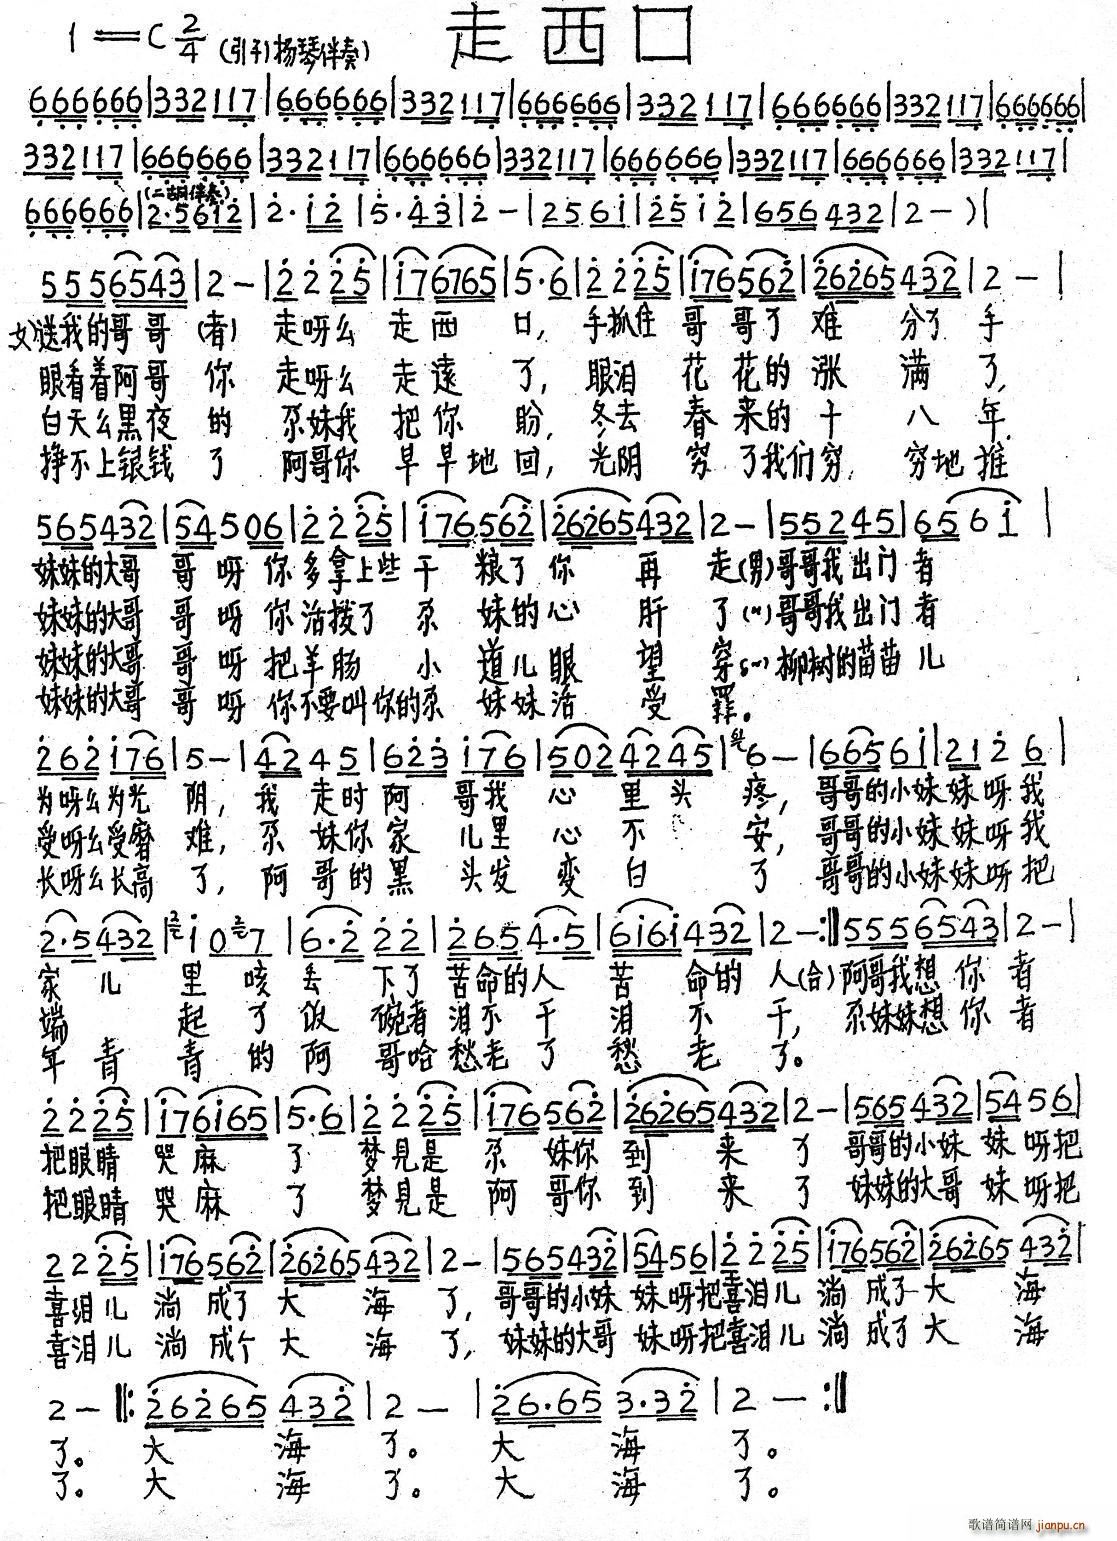 走西口
1=C 2/4 (引子)杨琴伴奏)
666666|332117|666666|332117|666666|332117|666666|332117|666666|
332117|666666|332117|666666|332117|666666|332117|666666|332117|
(二胡伴奏)
666666|2·5612|2·12|5·43|2-|2561|2512|656432|2-)|
5556543|2-|2225|176765|5·6|2225|176562|26265432|2-|
女)送我的哥哥(者)走呀么走西口,手抓住哥哥了难分了手
眼看着阿哥你走呀么走远了,眼泪花花的涨满了,
白天么黑夜的尕妹我把你盼,冬去春来的十八年,
挣不上银钱了阿哥你早早地回,光阴穷了我们穷,穷地推
565432|54506|2225|176562|26265432|2-|55245|6561|
妹妹的大哥哥呀你多拿上些干粮了你再走(男)哥哥我出门者
妹妹的大哥哥呀你活拨了尕妹的心肝了(〃)哥哥我出门者
妹妹的大哥哥呀把羊肠小道儿眼望穿(〃)柳树的苗苗儿
妹妹的大哥哥呀你不要叫你的尕妹妹活受罪。
262176|5-|4245|623176|5024245|6-|66561|2126|
为呀么为光阴,我走时阿哥我心里头疼,哥哥的小妹妹呀我
受呀么受磨难,尕妹你家儿里心不安,哥哥的小妹妹呀我
长呀么长高了,阿哥的黑头发变白了哥哥的小妹妹呀把
2·5432|107|6·222|2654·5|6161432|2-:|5556543|2-|
家儿里咳丢下了苦命的人苦命的人(合)阿哥我想你者
端起了饭碗者泪不干泪不干,尕妹妹想你者
年青青的阿哥哈愁老了愁老了。
2225|176165|5·6|2225|176562|26265432|2-|565432|5456|
把眼睛哭麻了梦见是尕妹你到来了哥哥的小妹妹呀把
把眼睛哭麻了梦见是阿哥你到来了妹妹的大哥妹呀把
2225|176562|26265432|2-|565432|5456|2225|176562|26265432|
喜泪儿淌成了大海了,哥哥的小妹妹呀把喜泪儿淌成了大海
喜泪儿淌成个大海了,妹妹的大哥妹呀把喜泪儿淌成了大海
2-|:26265432|2-|26·653·32|2-:|
了。大海了。大海了。
了。大海了。大海了。
歌谱简谱网 jianpu.cn